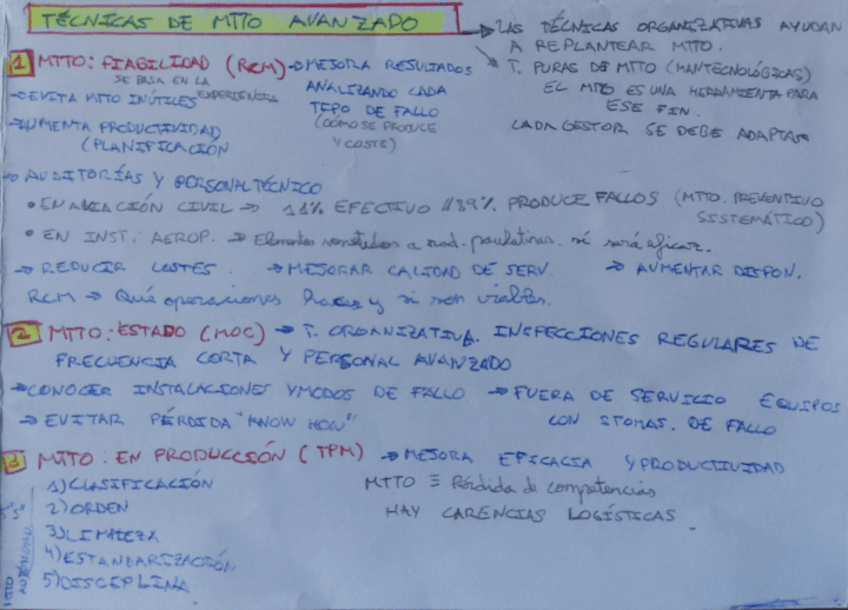 TÉCNICAS DE MTTO AVANZADO
→ LAS TÉCNICAS ORGANIZATIVAS AYUDAN
A REPLANTEAR MTTO.
→ T. PURAS DE MTTO (MANTECNOLÓGICAS)
EL MTTO ES UNA HERRAMIENTA PARA
ESE FIN.
CADA GESTOR SE DEBE ADAPTAR
1 MTTO: FIABILIDAD (RCM) → MEJORA RESULTADOS
ANALIZANDO CADA
TIPO DE FALLO
(CÓMO SE PRODUCE
Y COSTE)
SE BASA EN LA
EXPERIENCIA
→ EVITA MTTO INÚTILES
→ AUMENTA PRODUCTIVIDAD
(PLANIFICACIÓN
→ AUDITORÍAS Y PERSONAL TÉCNICO
• EN AVIACIÓN CIVIL → 11% EFECTIVO // 39% PRODUCE FALLOS (MTTO. PREVENTIVO
SISTEMÁTICO)
• EN INST. AEROP. → Elementos sometidos a paulatinas. sí será eficaz.
→ REDUCIR COSTES. → MEJORAR CALIDAD DE SERV. → AUMENTAR DISPON.
RCM → Qué operaciones haces y si son viables.
2 MTTO: ESTADO (MOC) → T. ORGANIZATIVA. INSPECCIONES REGULARES DE
FRECUENCIA CORTA Y PERSONAL AVANZADO
→ CONOCER INSTALACIONES Y MODOS DE FALLO → FUERA DE SERVICIO EQUIPOS
CON STOMAS. DE FALLO
→ EVITAR PÉRDIDA "KNOW HOW"
3 MTTO: EN PRODUCCIÓN (TPM) → MEJORA EFICACIA Y PRODUCTIVIDAD
MTTO ≡ Pérdida de competencias
HAY CARENCIAS LOGÍSTICAS.
5"S"
MTTO AUTÓNOMO
1) CLASIFICACIÓN
2) ORDEN
3) LIMPIEZA
4) ESTANDARIZACIÓN
5) DISCIPLINA